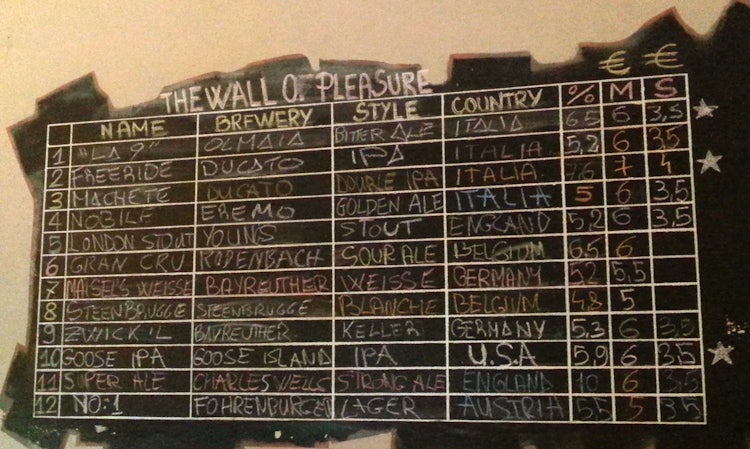 € €
THE WALL O. PLEASURE
NAME BREWERY STYLE COUNTRY % M S
1 "LA 9" OLMAIA BITTER ALE ITALIA 6,5 6 3,5
2 FREERIDE DUCATO IPA ITALIA 5,2 6 3,5
3 MACHETE DUCATO DOUBLE IPA ITALIA 7,6 7 4
4 NOBILE EREMO GOLDEN ALE ITALIA 5 6 3,5
5 LONDON STOUT YOUNS STOUT ENGLAND 5,2 6 3,5
6 GRAN CRU RODENBACH SOUR ALE BELGIUM 6,5 6
7 MAISEL'S WEISSE BAYREUTHER WEISSE GERMANY 5,2 5,5
8 STEENBRUGGE STEENBRUGGE BLANCHE BELGIUM 4,8 5
9 ZWICK'L BAYREUTHER KELLER GERMANY 5,3 6 3,5
10 GOOSE IPA GOOSE ISLAND IPA U.S.A 5,9 6 3,5
11 SUPER ALE CHARLES WELLS STRONG ALE ENGLAND 10 6 3,5
12 NO:1 FOHRENBURGER LAGER AUSTRIA 5,5 5 3,5